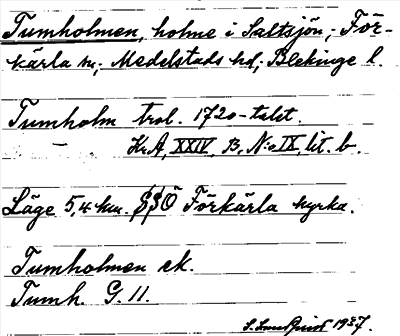 Tumholmen, holme i Saltsjön, För-
kärla sn, Medelstads hd, Blekinge l.
Tumholm trol. 1720-talet.
Kr A, XXIV, B, No IX, lit. b.
Läge 5,4 km. SSÖ Förkärla kyrka.
Tumholmen ek.
Tumh. G. 11.
1937.